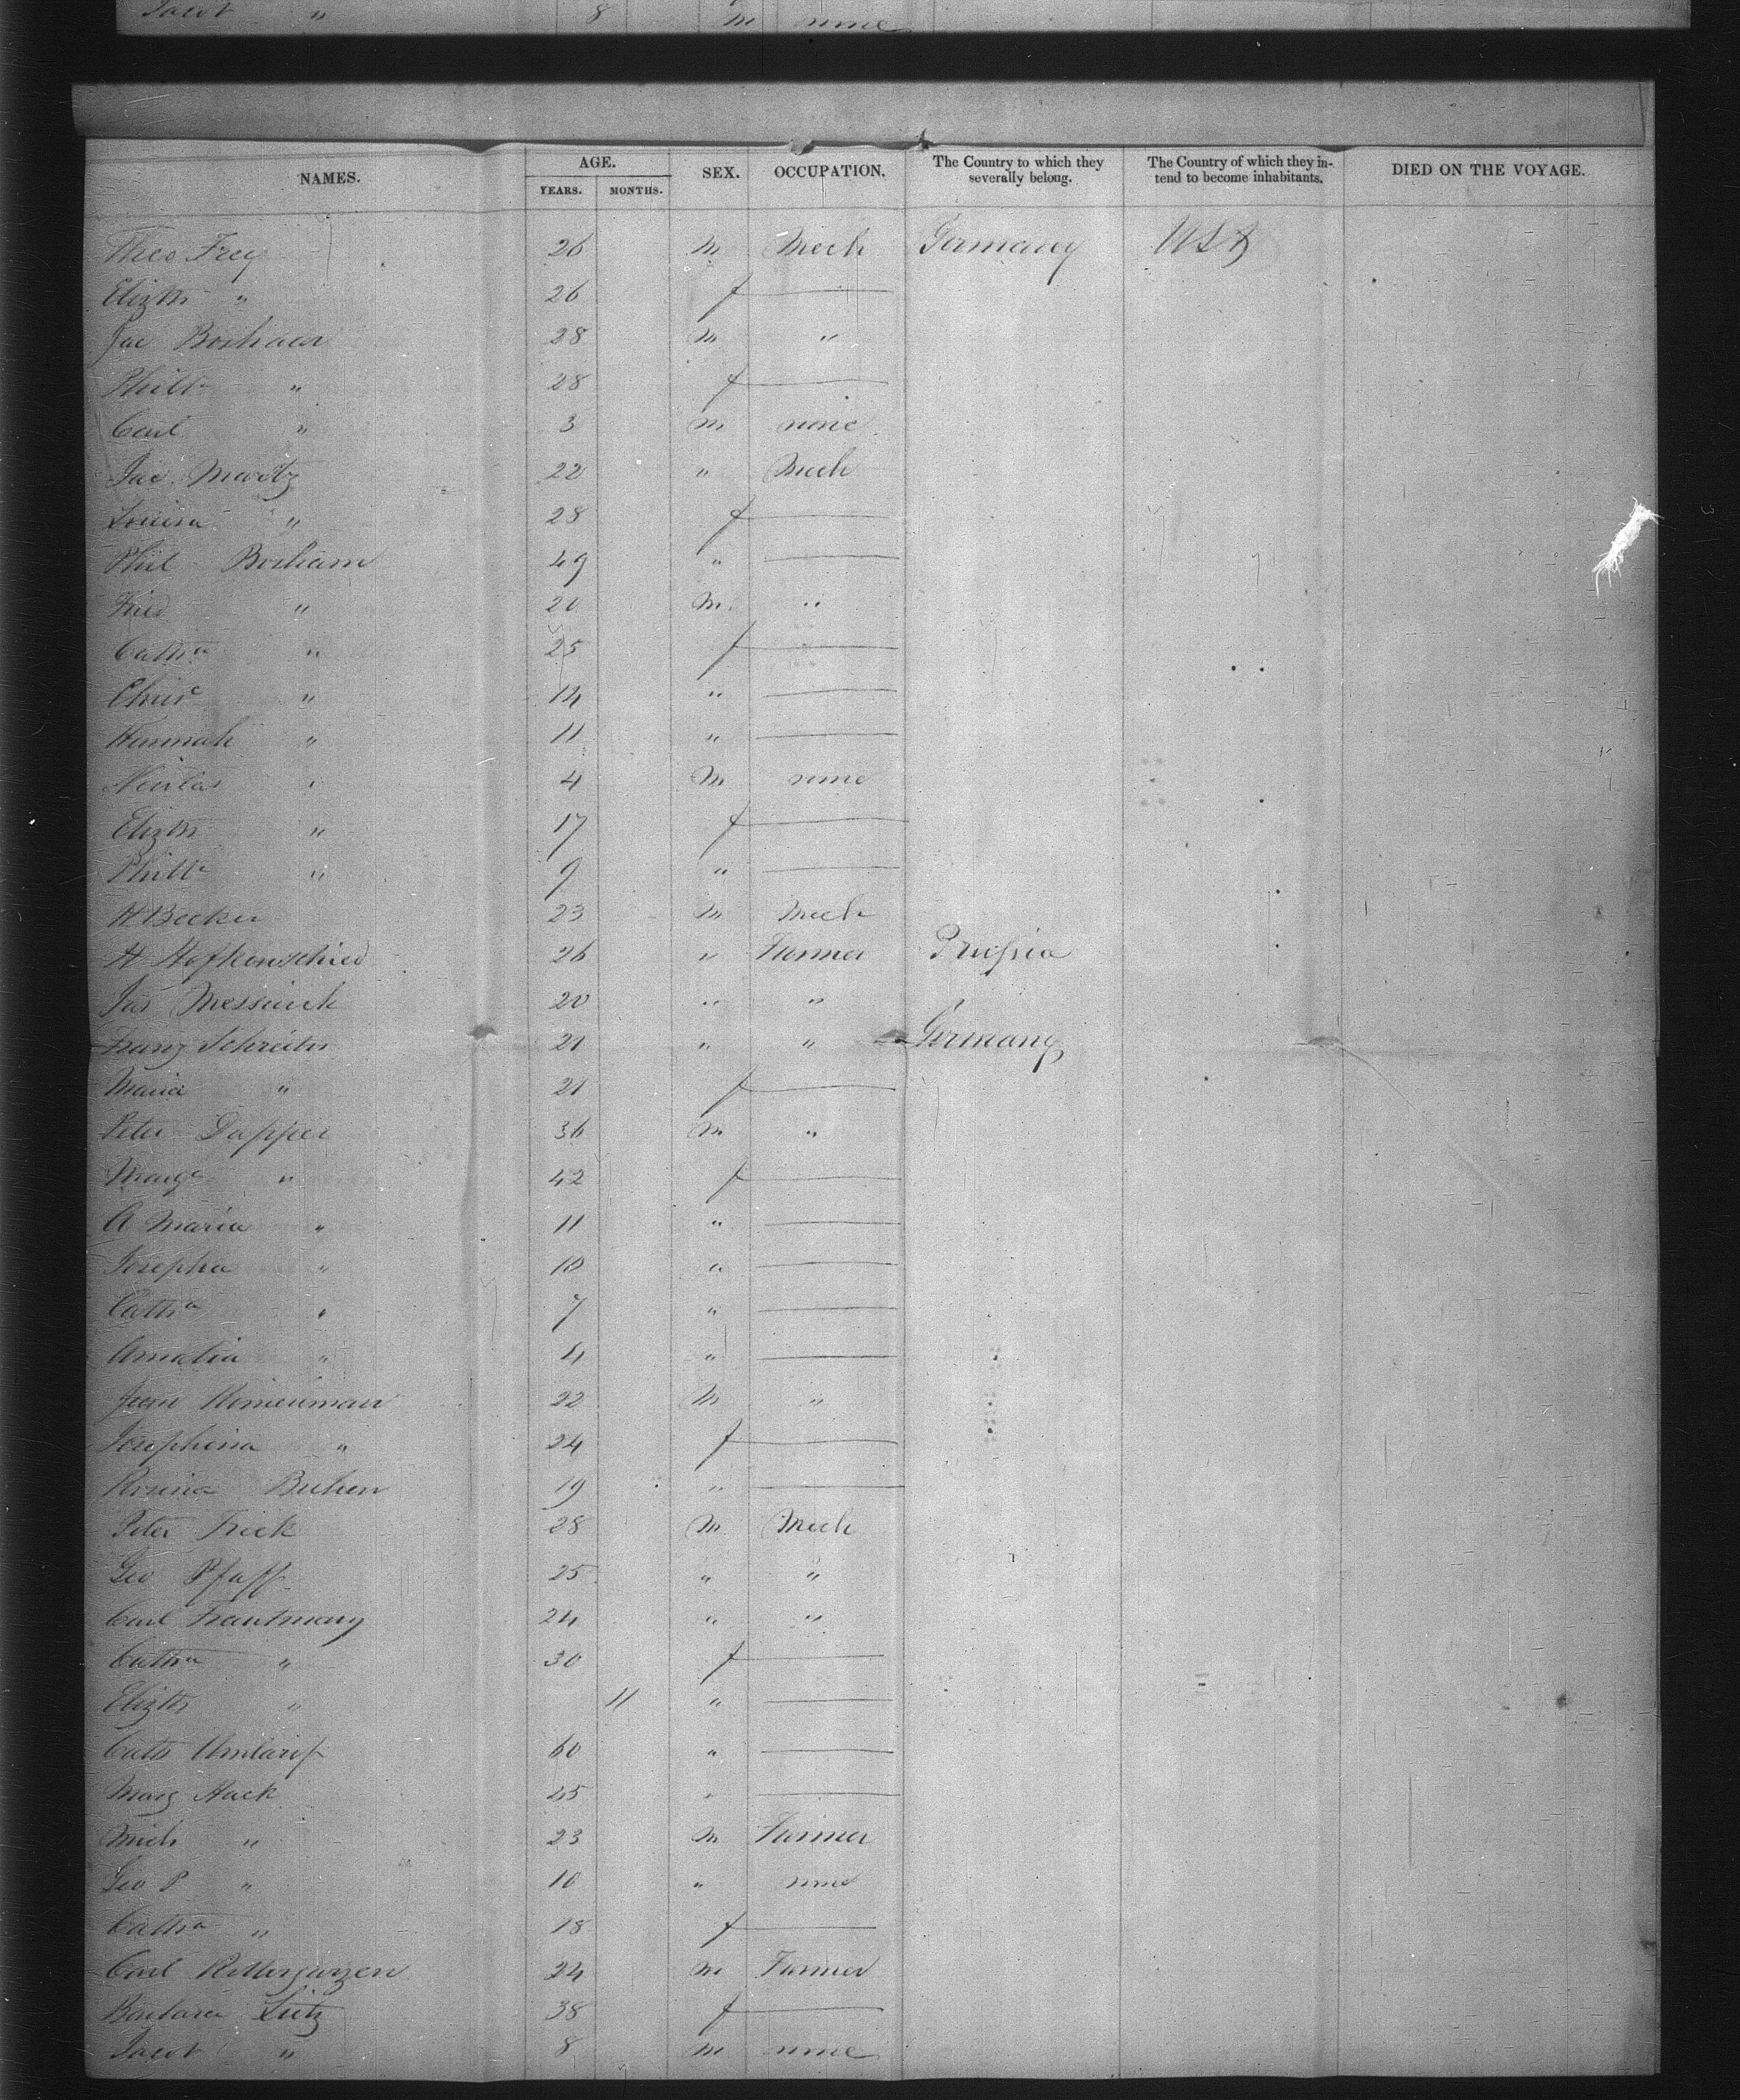 Jacob " 8 m none
NAMES. AGE. YEARS. MONTHS. SEX. OCCUPATION. The Country to which they severally belong. The Country of which they intend to become inhabitants. DIED ON THE VOYAGE.
Theo Frey 26 m Mech Germany USA
Elizth " 26 f
Jac 28 m "
Philla " 28 f
Carl " 3 m none
Jac. Moritz 22 " Mech
Louisa " 28 f
Phil 49 "
Fried " 20 m "
Cathn " 25 f
Chrise " 14 "
Hannah " 11 "
Nicolas " 4 m none
Elizth " 17 f
Philla " 9 "
H Becker 23 m Mech
H Hofkenschied 26 " Farmer Prussia
Jas 20 " "
Franz Schreiter 21 " " Germany
Maria " 21 f
Peter Dapper 36 m "
Marge " 42 f
A Maria " 11 "
Josepha " 10 "
Catha " 7 "
Amalia " 4 "
22 m "
Josephina " 24 f
Rosina 19 "
Peter Frick 28 m Mech
Geo Pfaff 25 " "
Carl 24 " "
Catha " 30 f
Elizth " 11 "
Cath 60 "
Marg Hack 45 "
Mich " 23 m Farmer
Geo P " 10 " none
Catha " 18 f
Carl 24 m Farmer
Barbara Lietz 38 f
Jacob " 8 m none